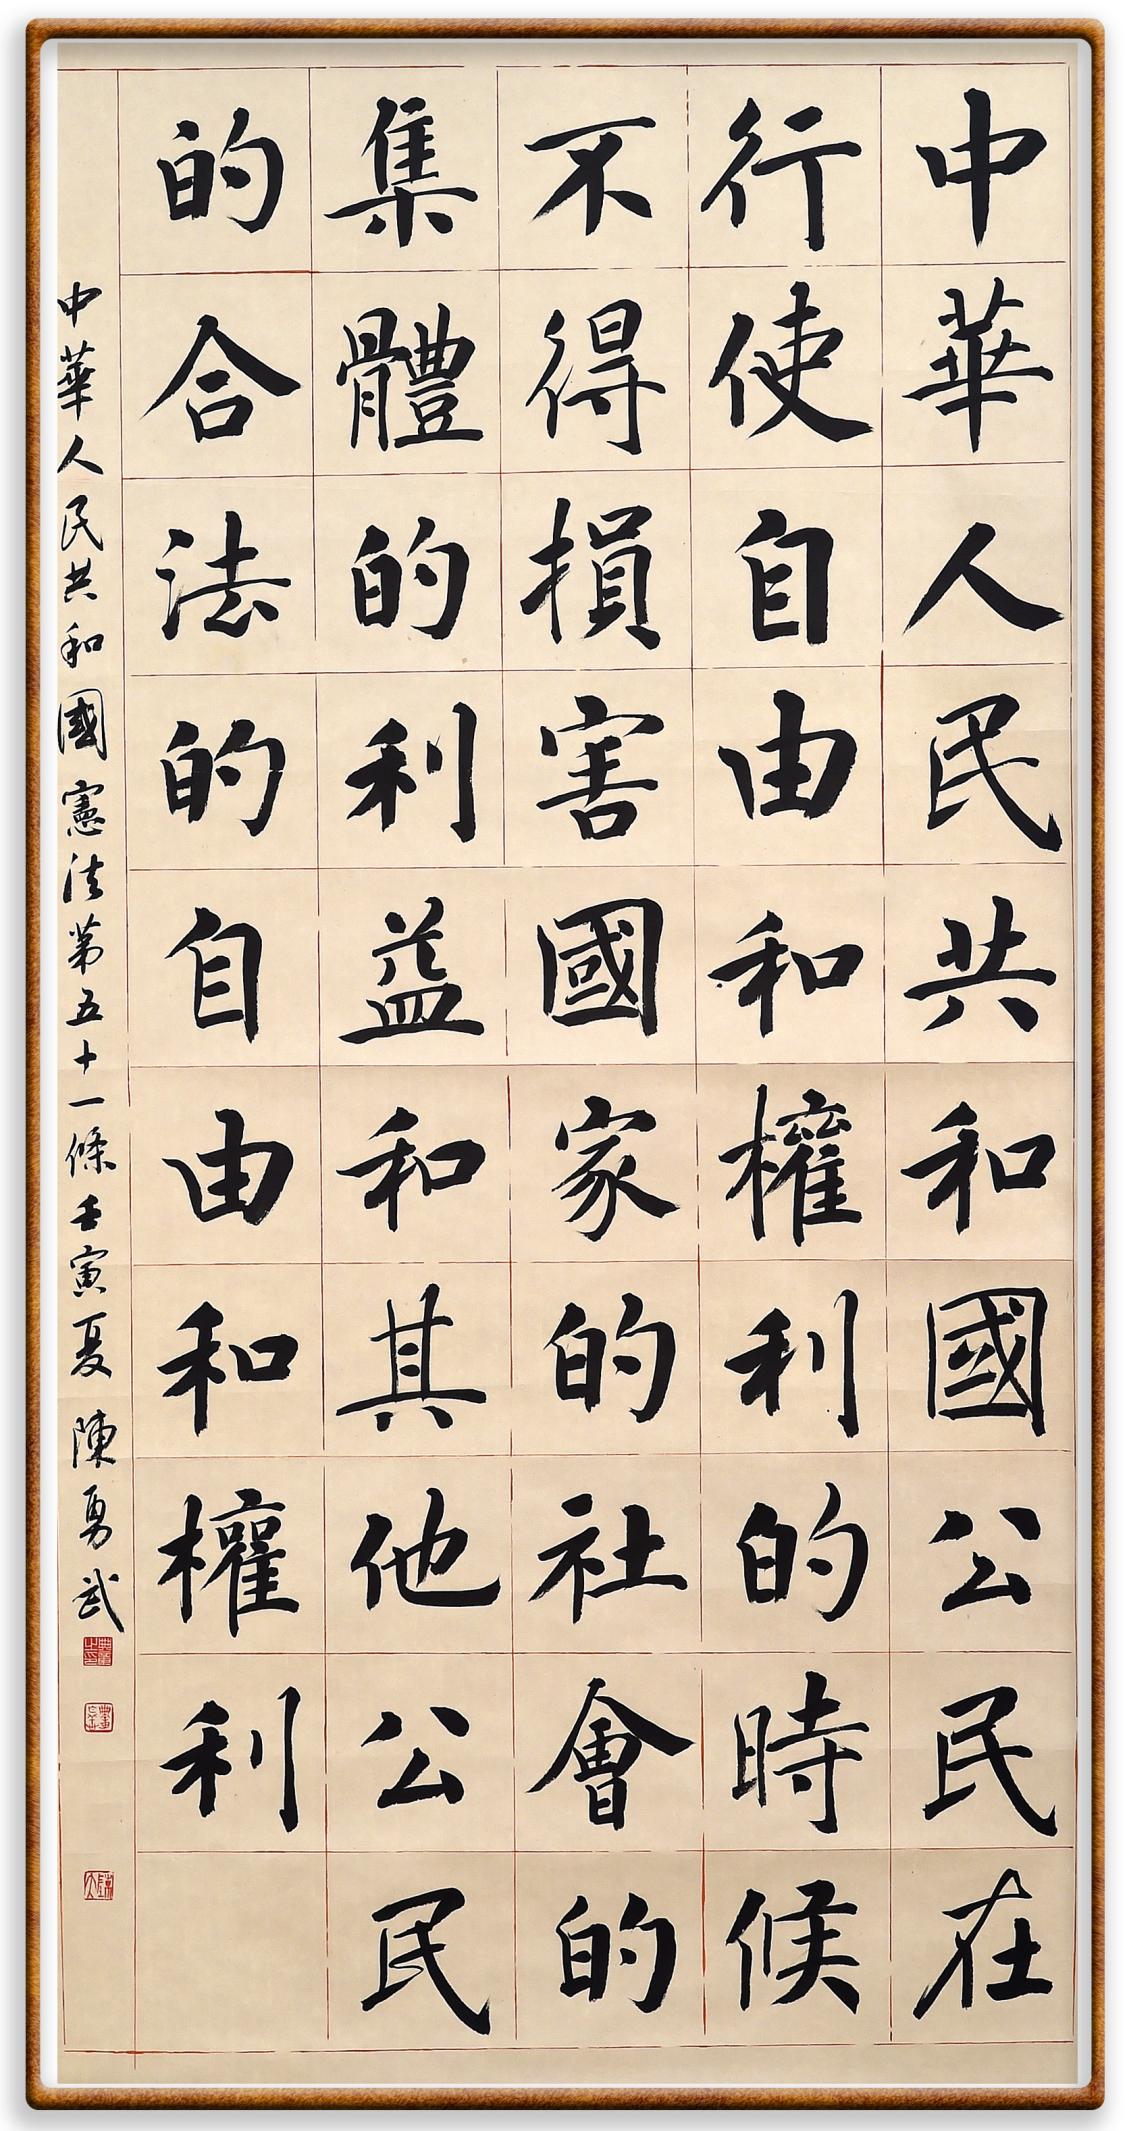 中華人民共和國公民在
行使自由和權利的時候
不得損害國家的社會的
集體的利益和其他公民
的合法的自由和權利
中華人民共和國憲法第五十一條壬寅夏陳勇武